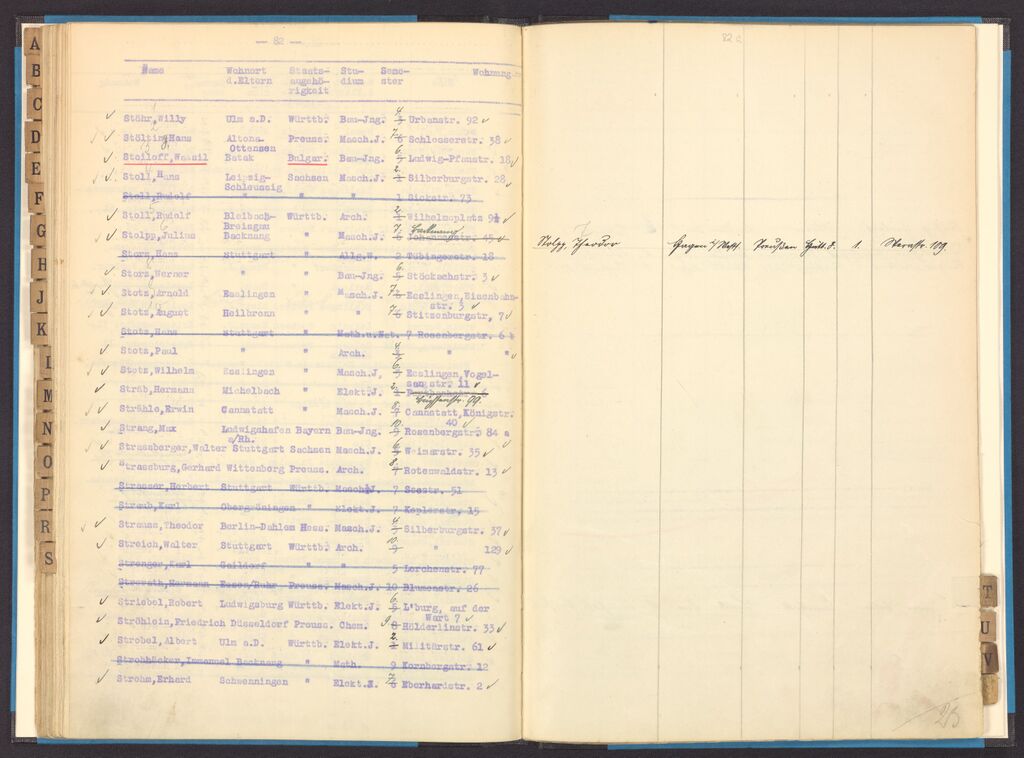 — 82 —
Name Wohnort Staats- Stu- Seme- Wohnung
d.Eltern angehö- dium ster
rigkeit
Stöhr,Willy Ulm a.D. Württb. Bau-Jng. 4 Urbanstr. 92
Stölting,Hans Altona- Preuss. Masch.J. Schlosserstr. 38
Ottensen
Stoiloff,Wassil Batak Bulgar. Bau-Jng. 6 Ludwig-Pfaustr. 18
Stoll,Hans Leipzig- Sachsen Masch.J. 2 Silberburgstr. 28
Schleussig
Stoll,Rudolf " " " 1 Sickstr. 73
Stoll,Rudolf Bleibach- Württb. Arch. 2 Wilhelmsplatz
Breisgau
Stolpp,Julius Backnang " Masch.J. 7 Johannesstr. 45 Backnang
Storz,Hans Stuttgart " Allg.W. 2 Tübingerstr. 18
Storz,Werner " " Bau-Jng. 6 Stöckachstr. 3
Stotz,Arnold Esslingen " Masch.J. Esslingen,Eisenbahn-
str. 3
Stotz,August Heilbronn " " Stitzenburgstr. 7
Stotz,Hans Stuttgart " Math.u.Nat. 7 Rosenbergstr.
Stotz,Paul " " Arch. " "
Stotz,Wilhelm Esslingen " Masch.J. 6 Esslingen,Vogel-
sangstr. 11
Sträb,Hermann Michelbach " Elekt.J. 2
99
Strähle,Erwin Cannstatt " Masch.J. Cannstatt,Königstr.
40
Strang,Max Ludwigshafen Bayern Bau-Jng. 10 Rosenbergstr. 84 a
a/Rh.
Strassberger,Walter Stuttgart Sachsen Masch.J. 6 Weimarstr. 35
Strassburg,Gerhard Wittenberg Preuss. Arch. 8 Rotewaldstr. 13
Strasser,Herbert Stuttgart Württb. Masch.J. 7 Seestr. 51
Straub,Karl Obergröningen " Elekt.J. 7 Keplerstr. 15
Strauss,Theodor Berlin-Dahlem Hess. Masch.J. 4 Silberburgstr. 37
Streich,Walter Stuttgart Württb. Arch. 10 " 129
Strenger,Karl Gaildorf " " 5 Lerchenstr. 77
Strerath,Hermann Essen/Ruhr Preuss. Masch.J. 10 Blumenstr. 26
Striebel,Robert Ludwigsburg Württb. Elekt.J. 6 L'burg, auf der
Wart 7
Ströhlein,Friedrich Düsseldorf Preuss. Chem. 9 Hölderlinstr. 33
Strobel,Albert Ulm a.D. Württb. Elekt.J. 2 Militärstr. 61
Strohhäcker,Immanuel Backnang " Math. 9 Kornbergstr. 12
Strohm,Erhard Schwenningen " Elekt.J. Eberhardstr. 2
82 a
Stolpp, Theodor Hagen i/ Westf. Preußen 1. Sternstr. 109.
A
B
C
D
E
F
G
H
J
K
L
M
N
O
P
R
S
T
U
V